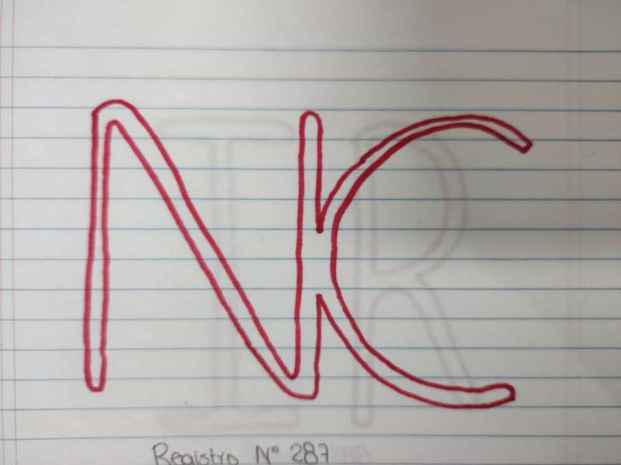 NC
Registro Nº 287